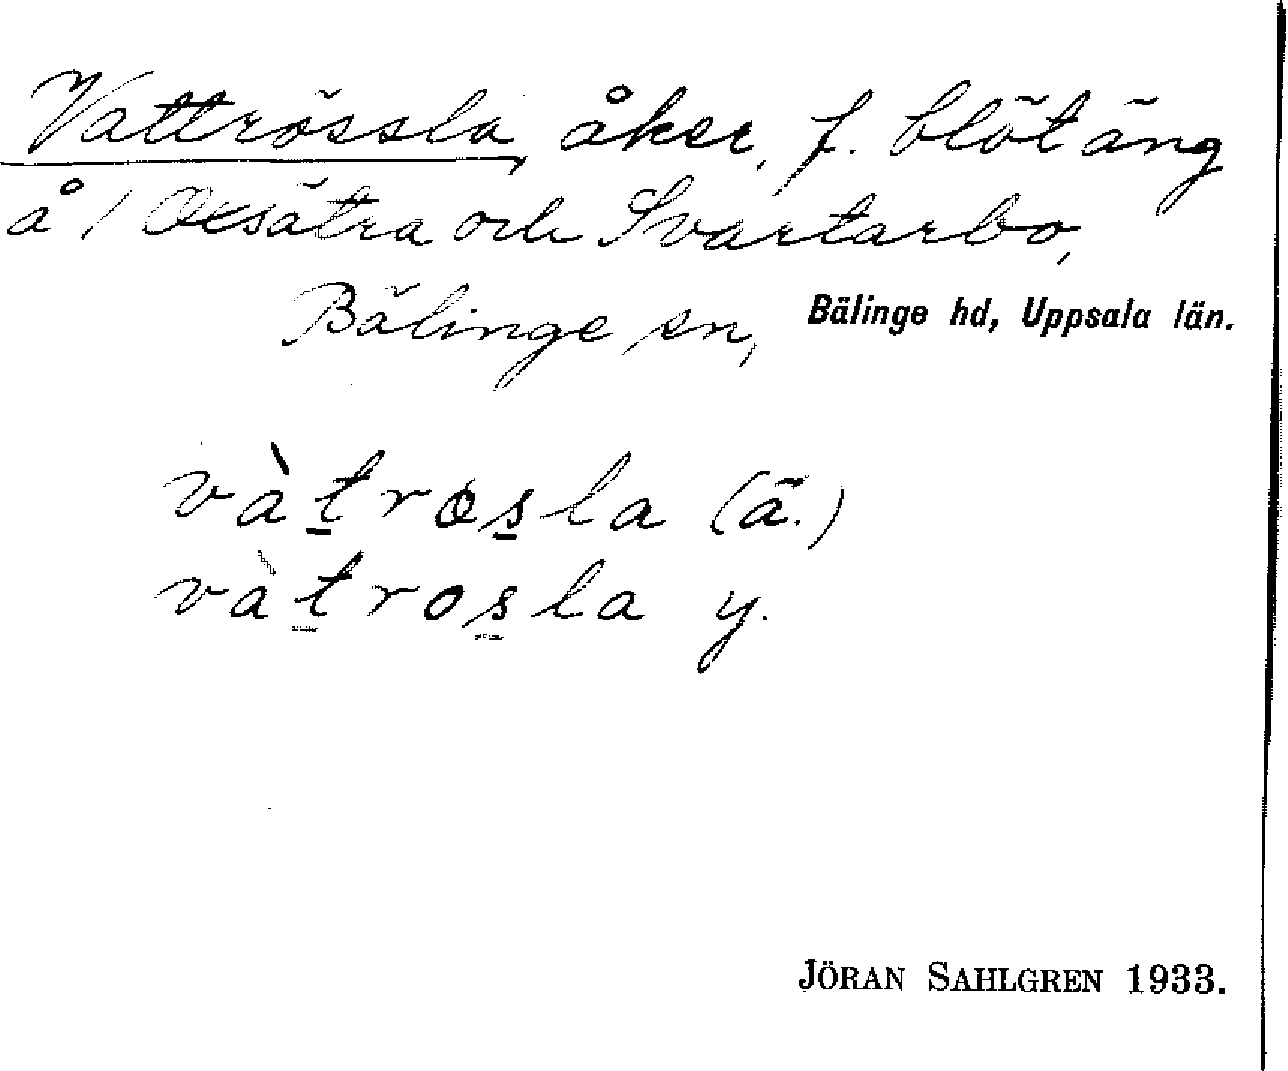 Vattrössla, åker, f. blötäng
å / Oxsätra och Svartarbo,
Bälinge sn, Bälinge hd, Uppsala län.
vàt̲ros̲la (ä.)
vàt̲ros̲la y.
JÖRAN SAHLGREN 1933.